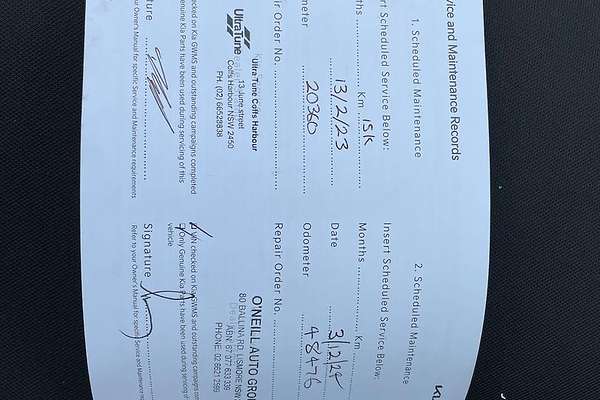 vice and Maintenance Records
1. Scheduled Maintenance
ert Scheduled Service Below:
ths ............ Km 15K
13/2/23
meter 20360
air Order No.
Ultra Tune Coffs Harbour
13 June street
Coffs Harbour NSW 2450
PH: (02) 66528838
UltraTune
hecked on Kia GWMS and outstanding campaigns completed
enuine Kia Parts have been used during servicing of this
ture
our Owner's Manual for specific Service and Maintenance requirements
2. Scheduled Maintenance
Insert Scheduled Service Below:
Months ............ Km
Date 3/12/24
Odometer 48476
Repair Order No.
O'NEILL AUTO GROU
80 BALLINA RD, LISMORE NSW
PHONE: 02 6621 2599
VIN checked on Kia GWMS and outstanding campaigns com
Only Genuine Kia Parts have been used during servicing of
vehicle
Signature
Refer to your Owner's Manual for specific Service and Maintenance req